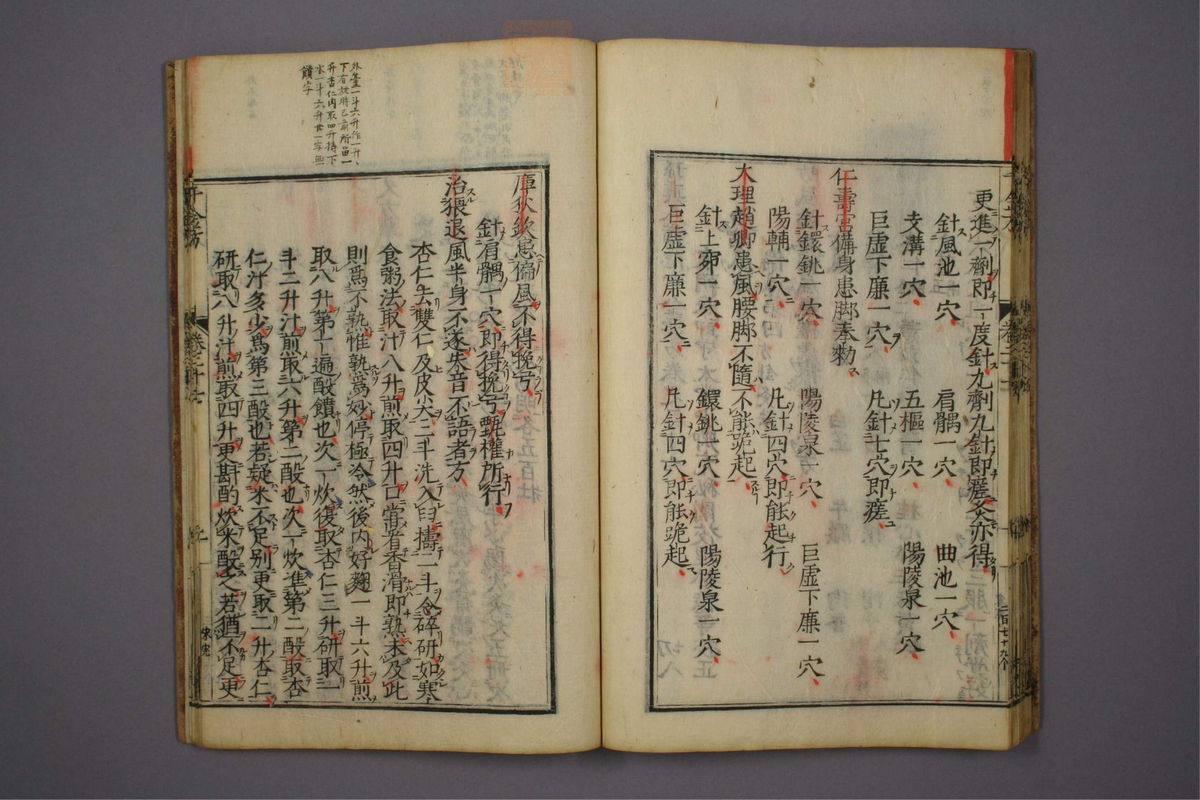 更進一劑即一度針九劑九針即瘥灸亦得
針風池一穴 肩髃一穴 曲池一穴
支溝一穴 五樞一穴 陽陵泉一穴
巨虚下廉一穴 凡針七穴即瘥
仁壽宮備身患脚奉勑
針鐶銚一穴 陽陵泉一穴 巨虚下廉一穴
陽輔一穴 凡針四穴即能起行
大理趙卿患風腰脚不隨不能跪起
針上窌一穴 鐶銚一穴 陽陵泉一穴
巨虚下廉一穴 凡針四穴即能跪起
庫狄欽患偏風不得挽弓
針肩髃一穴即得挽弓甄權所行
治猥退風半身不遂失音不語者方
杏仁去雙仁及皮尖三斗洗入臼擣二斗令碎研如寒
食粥法取汁八升煎取四升口嘗看香滑即熟未及此
則爲不熟惟熟爲妙停極冷然後内好麴一斗六升煎
取八升第一遍酘饙也次一炊復取杏仁三升研取一
斗二升汁煎取六升第二酘也次一炊準第二酘取杏
仁汁多少爲第三酘也若疑米不足别更取二升杏仁
研取八升汁煎取四升更斟酌炊米酘之若猶不足更
外臺一斗六升作一升、
下有放時已前所留一
升杏仁内取四升持下
水一斗六升廿一字無
饙字
千金方
卷之二十七
二百七十九个
宋完